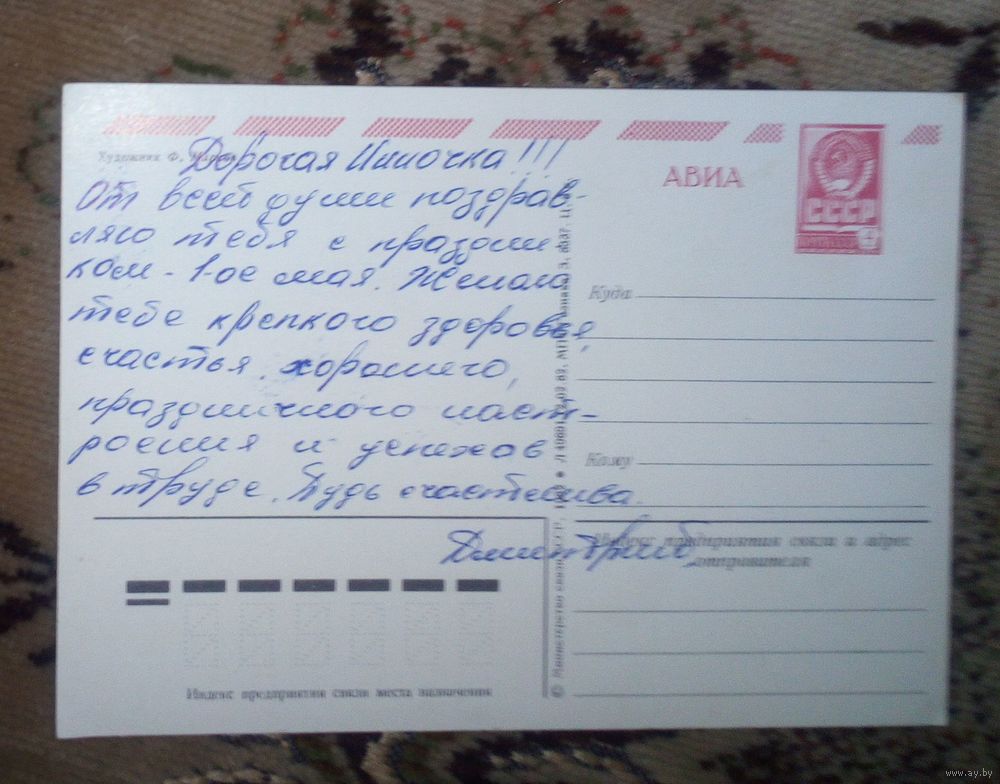 Художник Ф.
Дорогая Инночка!!!
От всей души поздрав-
ляю тебя с праздни
ком - 1-ое мая. Желаю
тебе крепкого здоровья,
счастья, хорошего,
праздничного наст-
роения и успехов
в труде. Будь счастлива.
Дмитрий
АВИА
СССР
Куда
Кому
Индекс предприятия связи и адрес
отправителя
Индекс предприятия связи места назначения
© Министерство связи СССР,
www.ay.by